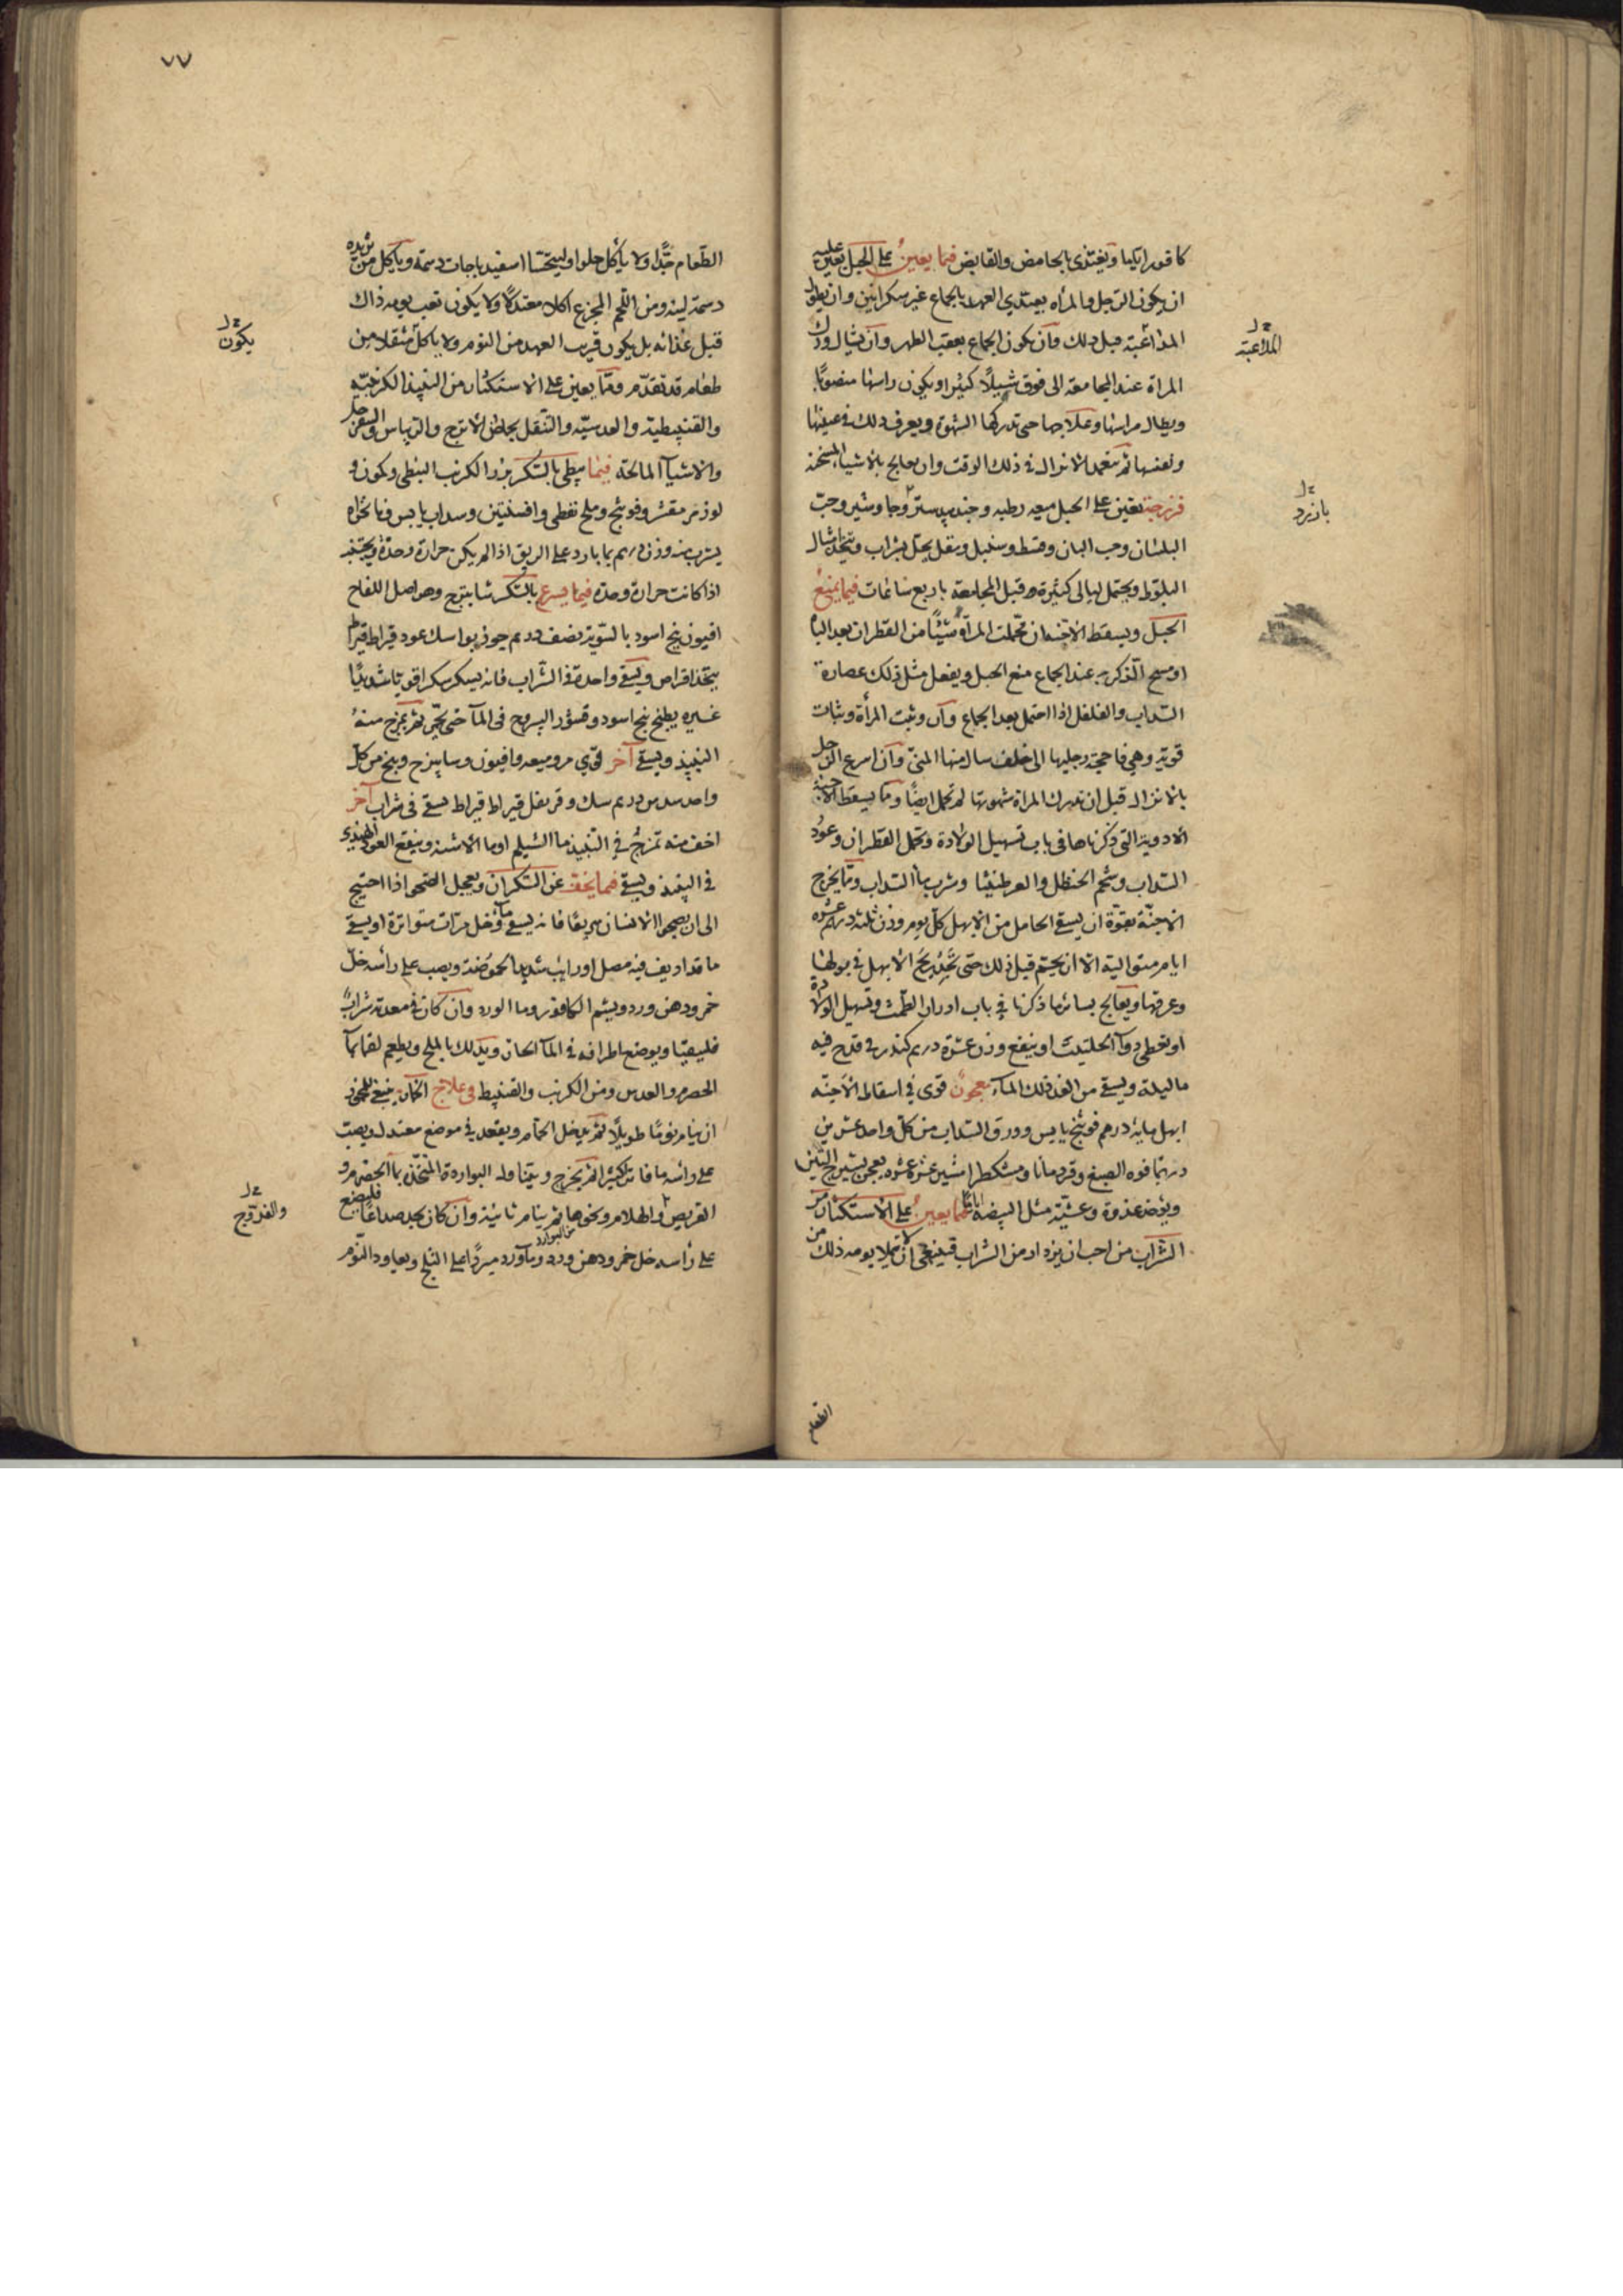 كافور رياحيا ويغتذى بالحامض والقابض فيما يعين على الحبل يعين عليه
ان يكون الرجل والمرأه بعيدي العهد بالجماع غير سكرانين وان يطول
المداعبة قبل ذلك وان يكون الجماع بعقب الطهر وان يشال ورك
المراة عند المجامعة الى فوق شيلًا كثيرا ويكون راسها منصوبًا
ويطال مراسها وعلاجها حتى تدركها الشهوة ويعرف ذلك في عينيها
ونفسها ثم يتعمد الانزال في ذلك الوقت وان يعالج بالاشياء المسخنة
فرزجة تعين على الحبل ميعه رطبه وجندبيدستر وجاوشير وحب
البلسان وحب البان وقسط وسنبل ومقل يحل بشراب ويتخذ امثال
البلوط ويحتمل ليالى كثيرة وقبل المجامعة باربع ساعات فيما يمنع
الحبل ويسقط الاجنه ان تحملت المرأة شيئًا من القطران بعد الباه
او مسح الذكر به عند الجماع منع الحبل ويفعل مثل ذلك عصارة
السداب والفلفل اذا احتمل بعد الجماع وان وثبت المرأة وثبات
قوية وهي فاحجة رجليها الى خلف سال منها المنيّ وان اسرع الرجل
بالانزال قبل ان تدرك المراة شهوتها لم تحمل ايضًا ومما يسقط الاجنة
الادوية التى ذكرناها فى باب تسهيل الولادة وتحمل القطران وعود
السداب وشحم الحنظل والعرطنيثا وشرب ماء السداب ومما يخرج
الاجنّة بقوّة ان يسقى الحامل من الابهل كلّ يوم وزن ثلثة دراهم عشره
ايام متوالية الا ان يجئهم قبل ذلك حتى تجد ريح الابهل في بولها
وعرقها ويعالج بسائر ما ذكرنا في باب ادرار الطمث وتسهيل الولادة
او تعطى دواء الحلتيت او ينقع وزن عشرة دراهم كندر في قدح فيه
ما ليلة ويسقى من الغد ذلك الماء معجون قوى في اسقاط الاجنّه
ابهل مايه درهم فوتنج يابس وورق السداب من كل واحد عشرين
درهما فوه الصبغ وقردمانا ومشكطرامشير عشرة عشره يعجن بشيرج التين
ويؤخذ غدوة وعشيّة مثل البيضة اياما فيما يعين على الاستكثار من
الشراب من احب ان يزداد من الشراب فينبغى ان لا يمتلا يومه ذلك من
الملاعبة
بازرد
الطعام
٧٧
الطّعام جدًا ولا يأكل حلوا وليتحسّا اسفيدباجات دسمة ويأكل من ثريده
دسمة لينه ومن اللحم المجزع اكلا معتدلًا ولا يكون تعب يومه ذاك
قبل غذائه بل يكون قريب العهد من النوم ولا ياكل متنقلا من
طعام قد تقدّم ومما يعين على الاستكثار من النبيذ الكرنبيّه
والقنبيطية والعدسيّه والتنقل بحماض الاترج والريباس والسفرجل
والاشيآ المالحة فيما يبطي بالسكر بزر الكرنب النبطى وكمون و
لوز مر مقشر وفوتنج وملح نفطى وافسنتين وسداب يابس ونانخواه
يشرب منه وزن درهم بما بارد على الريق اذا لم يكن حرارة وحدة ويجتنب
اذا كانت حرارة وحدة فيما يسرع بالسكر شابيزج وهو اصل اللفاح
افيون بنج اسود بالسوية نصف درهم جوزبوا سك عود قيراط قيراط
يتخذ اقراص ويسقى واحدة في الشراب فانه يسكر سكرا قويا شديدًا
غيره يطبخ بنج اسود وقشور اليبروح فى المآ حتى يحمرّ ثم يمزج منهُ
النبيذ ويسقى آخر قوي مر وميعه وافيون وسابيزج وبنج من كل
واحد سدس درهم سك وقرنفل قيراط قيراط يسقى في شراب آخر
اخف منه تمزج في النبيذ ما الشيلم او ما الاشنه وينقع العود الهندي
في النبيذ ويسقى فيما يخفف عن السكران ويعجل الصحو اذا احتيج
الى ان يصحوا الانسان سريعًا فانه يسقى ماءً وخل مرّات متواترة او يسقى
ما قد اديف فيه مصل او رايب شديد الحموضة ويصب على رأسه خلّ
خمر ودهن ورد ويشم الكافور وما الورد وان كان في معدته شرابًا
فليقيّا ويوضع اطرافه في المآ الحار ويدلك بالملح ويطعم لقما بمآ
الحصرم والعدس ومن الكرنب والقنبيط في علاج الخمار ينبغي للمخمور
ان ينام نومًا طويلًا ثم يدخل الحمام ويقعد في موضع معتدل ويصبّ
على رأسه ما فاتر كثيرًا ثم يخرج ويتناول البواردة المتخذه بمآ الحصرم و
القريص والهلام ونحوها ثم ينام ثانية وان كان يجد صداعًا فليضع
من البوارد
على رأسه خل خمر ودهن ورد ومآورد مبردًا على الثلج ويعاود النوم
يكون
والفروج